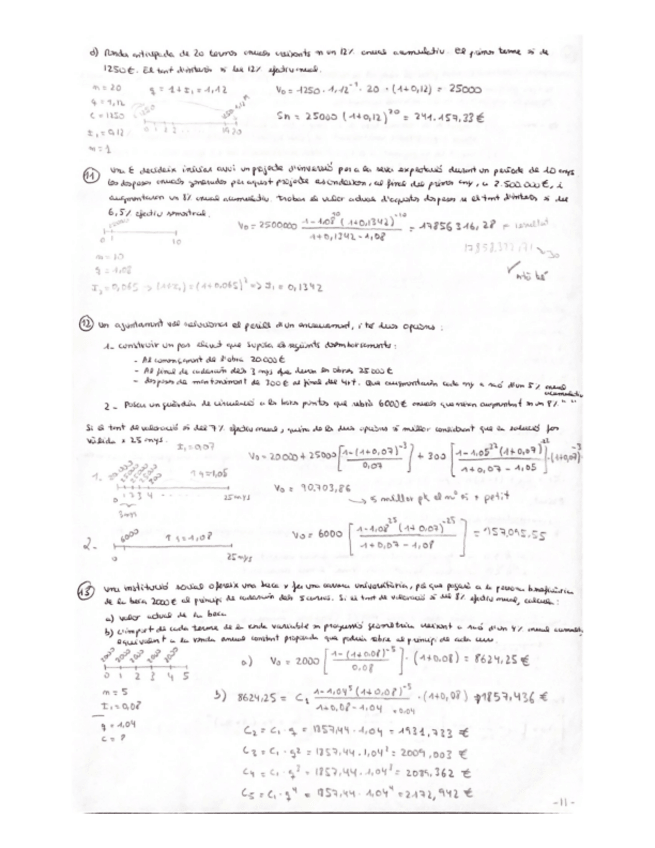 d) Renda anticipada de 20 termes anuals creixents en un 12% anual acumulatiu. El primer terme és de
1250€. El tant d'interès és del 12% efectiu anual.
n=20 q = 1+I₁ = 1,12 V₀ = 1250 · 1,12⁻¹ · 20 · (1+0,12) = 25000
q = 1,12
c = 1250 Sn = 25000 (1+0,12)²⁰ = 241.157,33 €
I₁ = 0,12
m = 1
11 Una E decideix iniciar avui un projecte d'inversió per a la seva expectació durant un període de 10 anys
les despeses anuals generades per aquest projecte ascendeixen, al final del primer any, a 2.500.000€, i
augmentaran un 8% anual acumulatiu. Trobar el valor actual d'aquestes despeses si el tant d'interès és del
6,5% efectiu semestral.
V₀ = 2500000 1-1,08¹⁰ (1+0,1342)⁻¹⁰ / 1+0,1342-1,08 = 17856316,28
0 1 10
n = 10
q = 1,08
I₂ = 0,065 → (1+I₁) = (1+0,065)² => I₁ = 0,1342
12 Un ajuntament vol solucionar el perill d'un encreuament, i té dues opcions:
1- construir un pas elevat que suposa els següents desemborsaments:
- Al començament de l'obra 20000€
- Al final de cadascun dels 3 anys que duren les obres 25000€
- despeses de manteniment de 300€ al final del 4rt. Que augmentaran cada any a raó d'un 5% anual
acumulatiu
2- Posar un guàrdia de circulació a les hores puntes que rebrà 6000€ anuals que aniran augmentant en un 8% " "
Si el tant de valoració és del 7% efectiu anual, quina de les dues opcions és millor considerant que la solució fos
vàlida x 25 anys.
I₁ = 0,07
V₀ = 20000 + 25000 [1-(1+0,07)⁻³ / 0,07] + 300 [1-1,05²² (1+0,07)⁻²² / 1+0,07-1,05] · (1+0,07)⁻³
1. q = 1,05
0 1 2 3 4 25 anys
3 anys
V₀ = 90.703,86
→ és millor pk el nº és + petit
2- 6000 q = 1,08 25 anys
V₀ = 6000 [1-1,08²⁵ (1+0,07)⁻²⁵ / 1+0,07-1,08] = 157.095,55
13 Una institució social ofereix una beca x fer una carrera universitària, pel que pagarà a la persona beneficiària
de la beca 2000€ al principi de cadascun dels 5 cursos. Si el tant de valoració és del 8% efectiu anual, calcula:
a) valor actual de la beca
b) L'import de cada terme de la renda variable en progressió geomètrica creixent a raó d'un 4% anual acumulat,
equivalent a la renda anual constant proposada que podria rebre al principi de cada curs.
2000 2000 2000 2000 2000
0 1 2 3 4 5
a) V₀ = 2000 [1-(1+0,08)⁻⁵ / 0,08] · (1+0,08) = 8624,25 €
n = 5
I₁ = 0,08
q = 1,04
c = ?
b) 8624,25 = C₁ 1-1,04⁵ (1+0,08)⁻⁵ / 1+0,08-1,04 · (1+0,08) 1857,436 €
0,04
C₂ = C₁ · q = 1857,44 · 1,04 = 1931,733 €
C₃ = C₁ · q² = 1857,44 · 1,04² = 2009,003 €
C₄ = C₁ · q³ = 1857,44 · 1,04³ = 2089,362 €
C₅ = C₁ · q⁴ = 1857,44 · 1,04⁴ = 2172,942 €
-11-